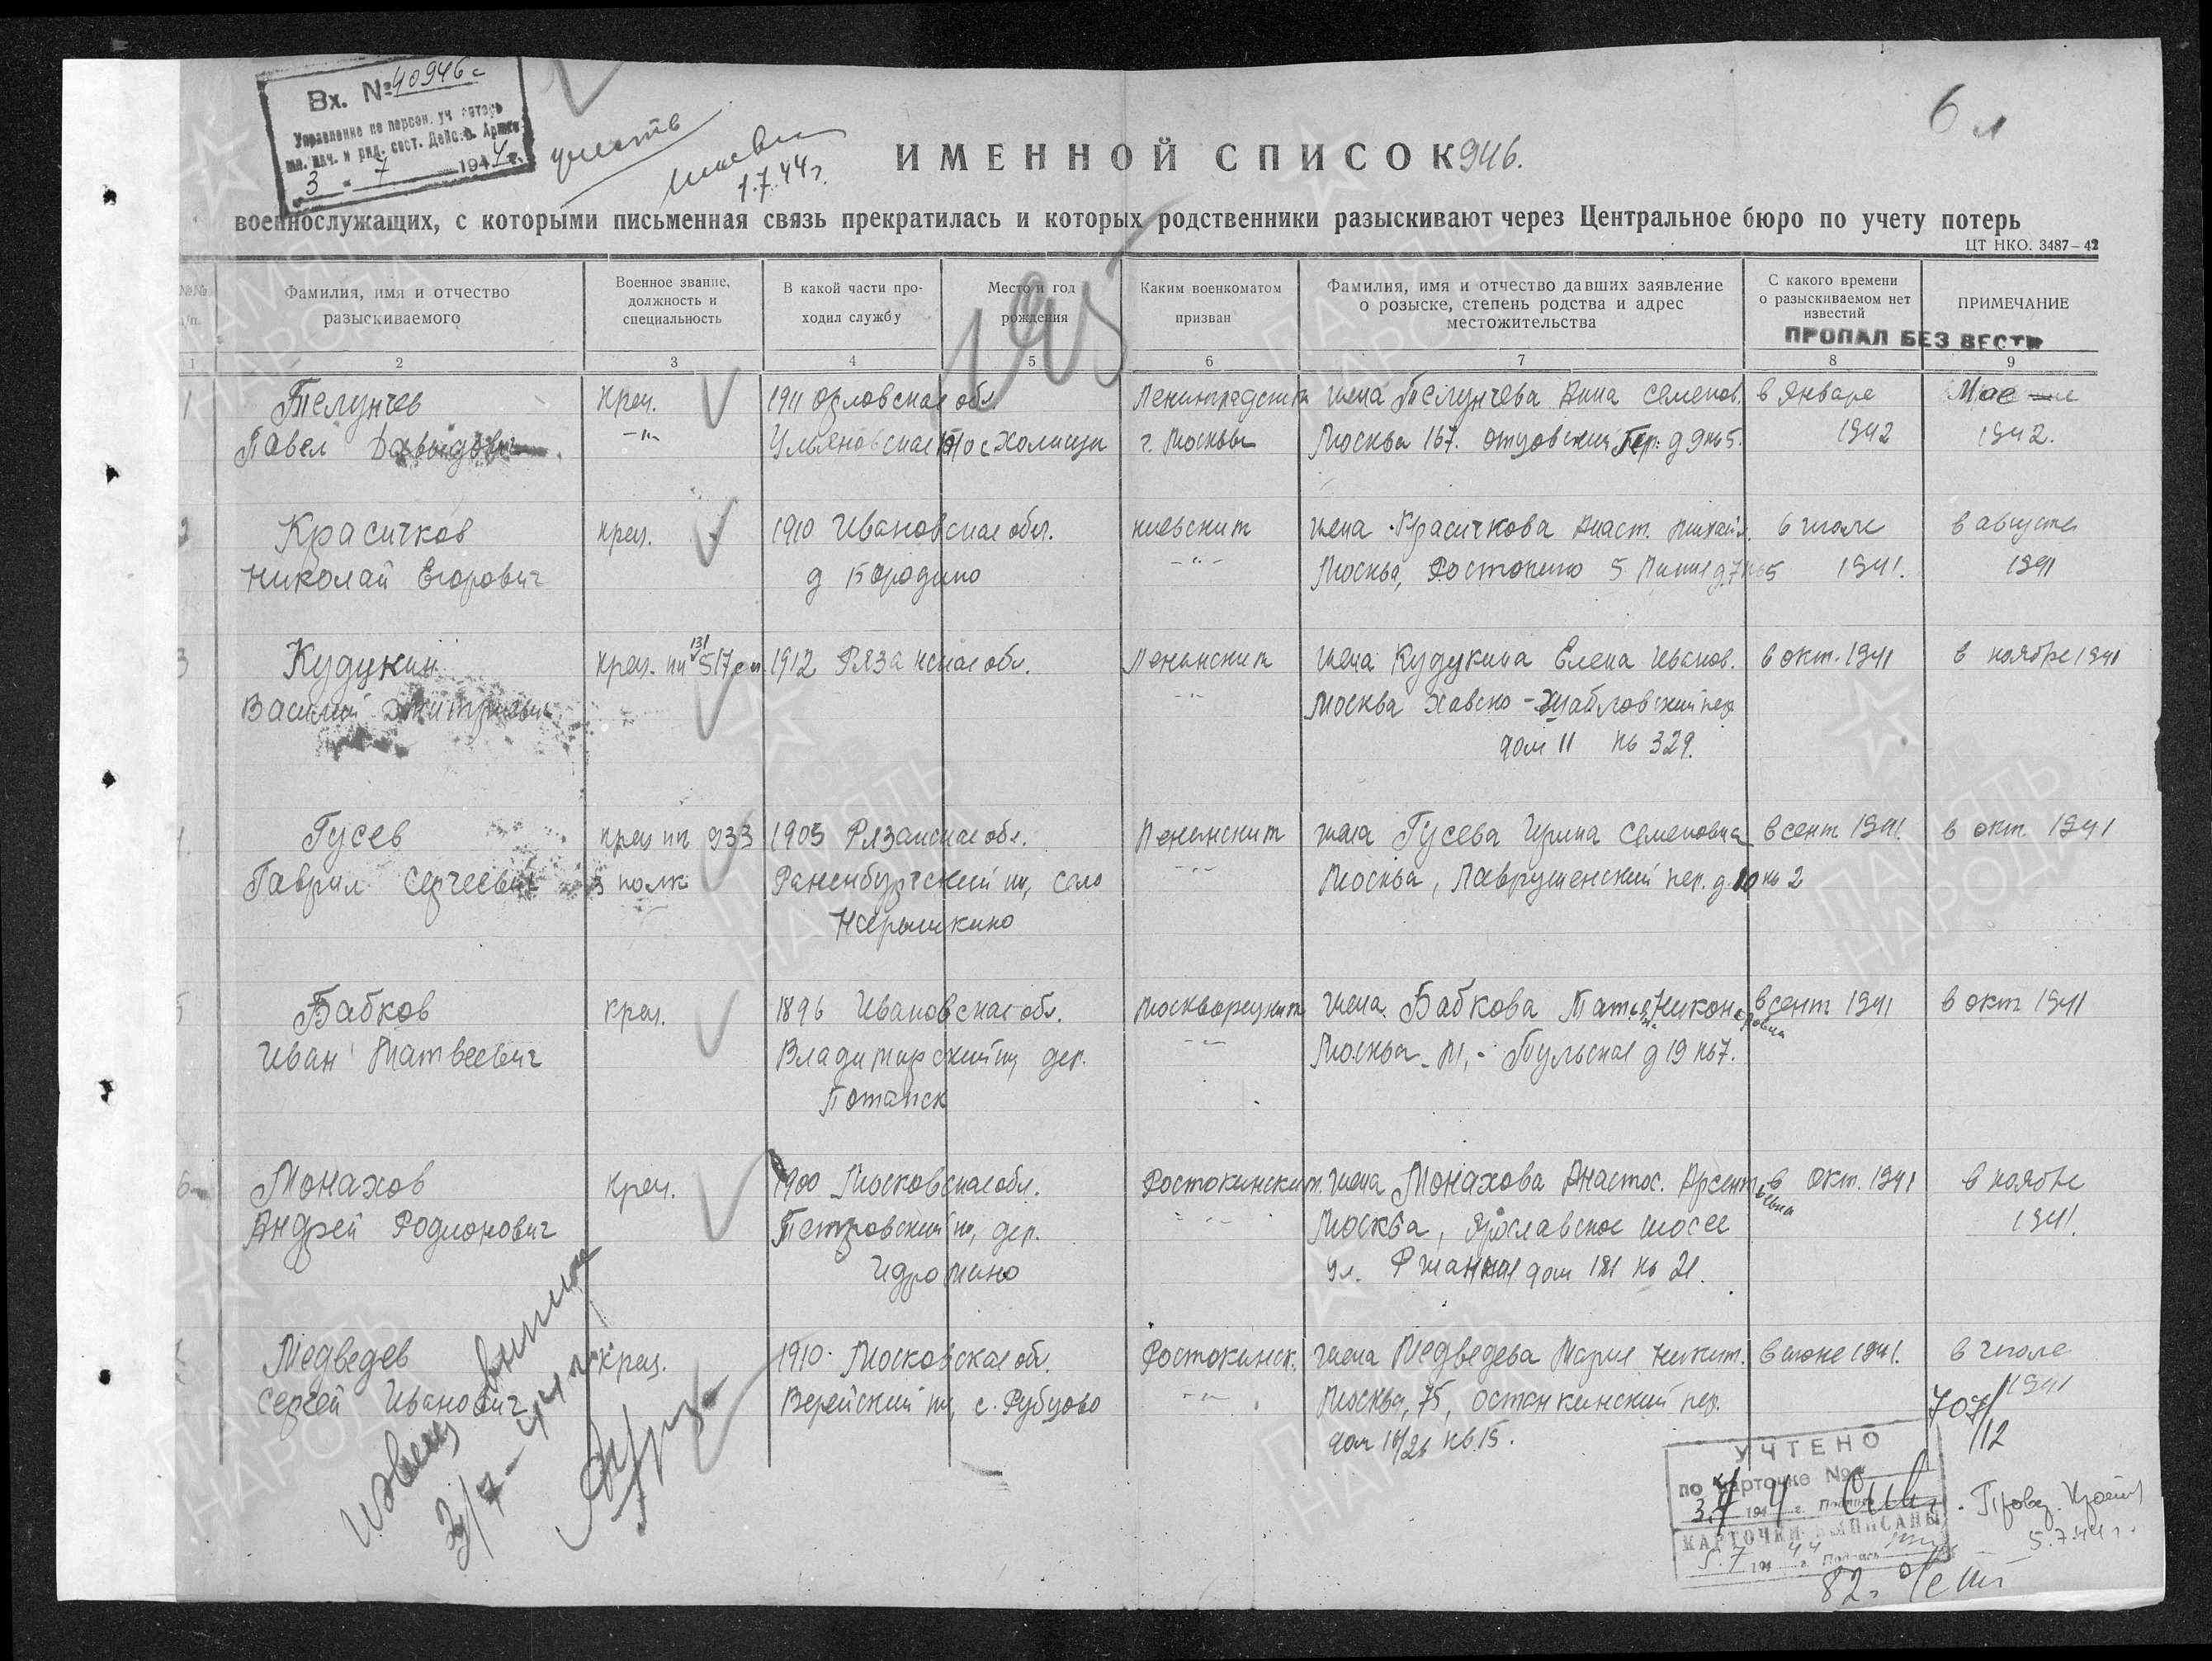 Вх. № 40946с
Управление по персон. уч. потерь
мл. нач. и ряд. сост. Дейс. Армии
3 " 7 1944 г.
учесть
1.7.44 г.
6 л
ИМЕННОЙ СПИСОК 946.
военнослужащих, с которыми письменная связь прекратилась и которых родственники разыскивают через Центральное бюро по учету потерь
ЦТ НКО. 3487–42
195
№№ п/п.
Фамилия, имя и отчество разыскиваемого
Военное звание, должность и специальность
В какой части проходил службу
Место и год рождения
Каким военкоматом призван
Фамилия, имя и отчество давших заявление о розыске, степень родства и адрес местожительства
С какого времени о разыскиваемом нет известий
ПРИМЕЧАНИЕ
ПРОПАЛ БЕЗ ВЕСТИ
1 2 3 4 5 6 7 8 9
1 Телунчев Кр-ц. 1911 Орловская обл. Ленинградским жена Телунчева Анна Семенов. в январе Мае
Павел Давыдович -"- Ульяновский с Холищи г. Москвы Москва 167. пер. д 9 кв 5. 1942 1942.
2 Красичков кр-ц. 1910 Ивановская обл. Киевским жена Красичкова Анаст. Михайл. в июле в августе
Николай Егорович д Бородино -"- Москва, Ростокино 5 д 7 кв 5 1941. 1941
3 Кудукин кр-ц. 131 517 1912 Рязанская обл. Ленинским жена Кудукина Елена Иванов. в окт. 1941 в ноябре 1941
Василий Дмитриевич -"- Москва Хавско-Шабловский пер
дом 11 кв 329.
4. Гусев кр-ц 933 1905 Рязанская обл. Ленинским жена Гусева Ирина Семеновна в сент 1941. в окт 1941
Гаврил Сергеевич полк Раненбургский село -"- Москва, Лаврушенский пер. д 10 кв 2
Нарышкино
5 Бабков кр-ц. 1896 Ивановская обл. Москворецким жена Бабкова Татьян. Никоноровна в сент 1941 в окт 1941
Иван Матвеевич Владимирский дер. -"- Москва М.-Тульская д 19 кв 7.
6 Монахов кр-ц. 1900 Московская обл. Ростокинским жена Монахова Анастас. Арсентьевна в окт. 1941 в ноябре
Андрей Родионович Петровский дер. -"- Москва, Ярославское шоссе 1941.
ул. дом 181 кв 21.
Медведев Кр-ц. 1910 Московская обл. Ростокинск. жена Медведева Мария Никит. в июне 1941. в июле
Сергей Иванович Верейский с. Рубцово -"- Москва, 75, Останкинский пер. 1941
дом 16/26 кв 15.
707/12
3/7-44 г.
УЧТЕНО
по карточке №
3.7 1944 г. Подпись
КАРТОЧКИ ВЫПИСАНЫ
5.7 1944 г. Подпись
5.7.44 г.
82
ПАМЯТЬ
НАРОДА